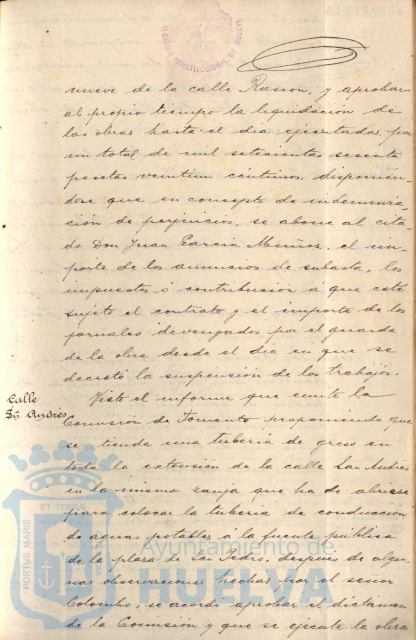 ALCALDIA CONSTITUCIONAL DE HUELVA
nueve de la calle Rascon, y aprobar
al propio tiempo la liquidación de
las obras hasta el dia ejecutadas, por
un total de mil setecientas sesenta
pesetas veintiun céntimos, disponien-
dose que en concepto de indemniza-
ción de perjuicios, se abone al cita-
do Don Juan García Muñoz, el im-
porte de los anuncios de subasta, los
impuestos ó contribución a que esté
sujeto el contrato y el importe de los
jornales devengados por el guarda
de la obra desde el dia en que se
decretó la suspensión de los trabajos.
Calle
Sn. Andrés
Visto el informe que emite la
Comisión de Fomento proponiendo que
se tienda una tuberia de gress en
toda la extensión de la calle San Andrés
en la misma zanja que ha de abrirse
para colocar la tuberia de conducción
de aguas potables á la fuente pública
de la plaza de San Pedro, despues de algu-
nas observaciones hechas por el señor
Colombo, se acordó aprobar el dictamen
de la Comisión y que se ejecute la obra
PORTUS MARIS
ET TERRÆ
Ayuntamiento de
HUELVA